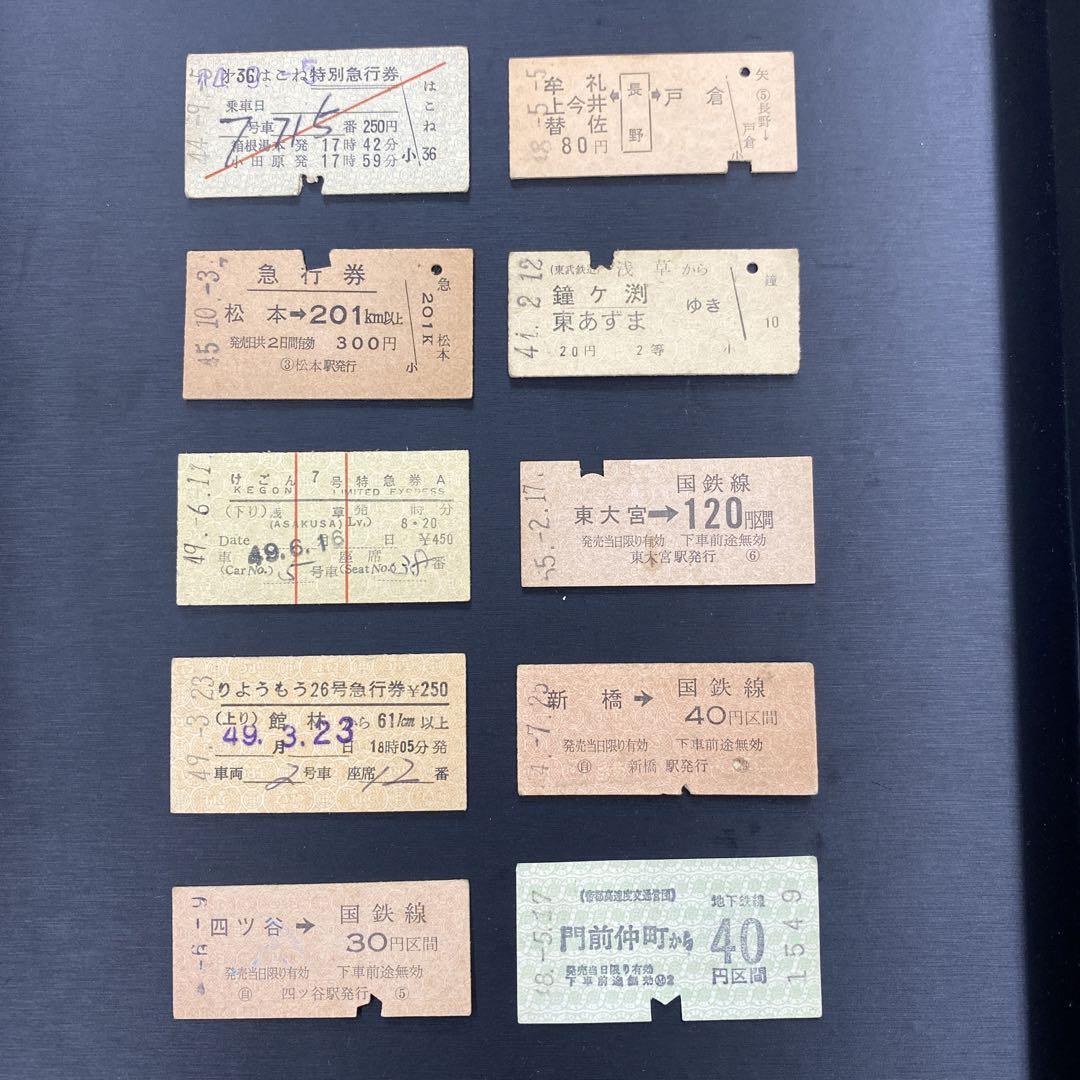 才36はこね特別急行券
乗車日
7号車 715番 250円
箱根湯本 発 17時42分
小田原 発 17時59分
はこね36
小
44-9
牟礼
上今井
替佐
長野
戸倉
80円
矢
⑤長野→
戸倉
小
8.-5.-5
急行券
松本→201km以上
発売日共2日間有効 300円
③松本駅発行
急
201K
松本
小
45.10.-3
(東武鉄道) 浅草から
鐘ヶ渕
東あずま
ゆき
20円 2等 小
鐘
10
41.2.12
けごん 7号特急券A
KEGON LIMITED EXPRESS
(下り) 浅草発 時分
(ASAKUSA) Lv.) 8・20
Date 49.6.16 日 ¥450
車 座席
(Car No.) 5号車 (Seat No.) 38番
49.-6.11
国鉄線
東大宮→120円区間
発売当日限り有効 下車前途無効
東大宮駅発行 ⑥
55.-2.17
りようもう26号急行券¥250
(上り) 館林から61km以上
49.3.23
月 日 18時05分発
車両 2号車 座席 12番
49.-3.23
新橋→国鉄線
40円区間
発売当日限り有効 下車前途無効
㊀ 新橋駅発行
-7.23
四ツ谷→国鉄線
30円区間
発売当日限り有効 下車前途無効
自 四ツ谷駅発行 ⑤
-6.-9
(帝都高速度交通営団)
地下鉄線
門前仲町から 40
円区間
発売当日限り有効
下車前途無効 M2
8.-5.17
1549